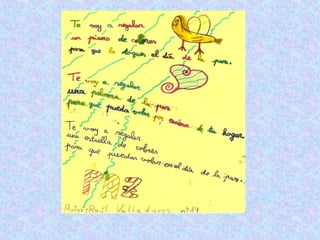 Te voy a regalar
un piano de colores
para que lo toques el día de la paz.
Te voy a regalar
una paloma de la paz
para que pueda volar por encima de tu hogar
Te voy a regalar
una estrella de colores
para que puedas volar en el día de la paz.
PAZ
Autor: Raúl Valladares nº19